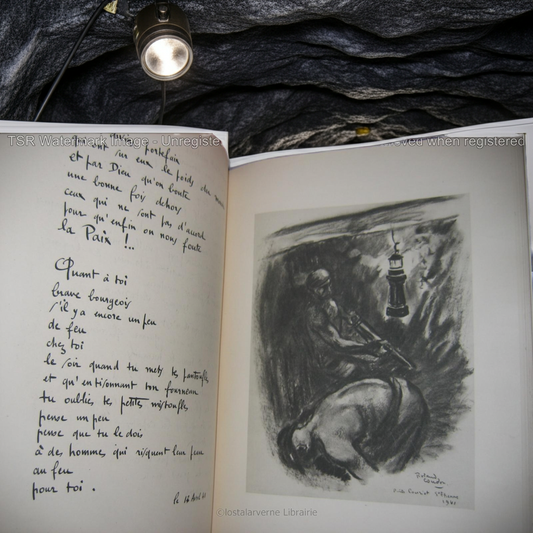 TSR Watermark Image - Unregiste
oved when registered
portefaix
sur eux le poids du
et par Dieu qu'on boute
une bonne fois dehors
ceux qui ne sont pas d'accord
pour qu'enfin on nous foute
la Paix !..
Quant à toi
brave bourgeois
s'il y a encore un peu
de feu
chez toi
le soir quand tu mets tes pantoufles
et qu'en tisonnant ton fourneau
tu oublies tes petites mistoufles
pense un peu
pense que tu le dois
à des hommes qui risquent leur feu
au feu
pour toi.
le 16 Avril 41
1941
©lostalarverne Librairie